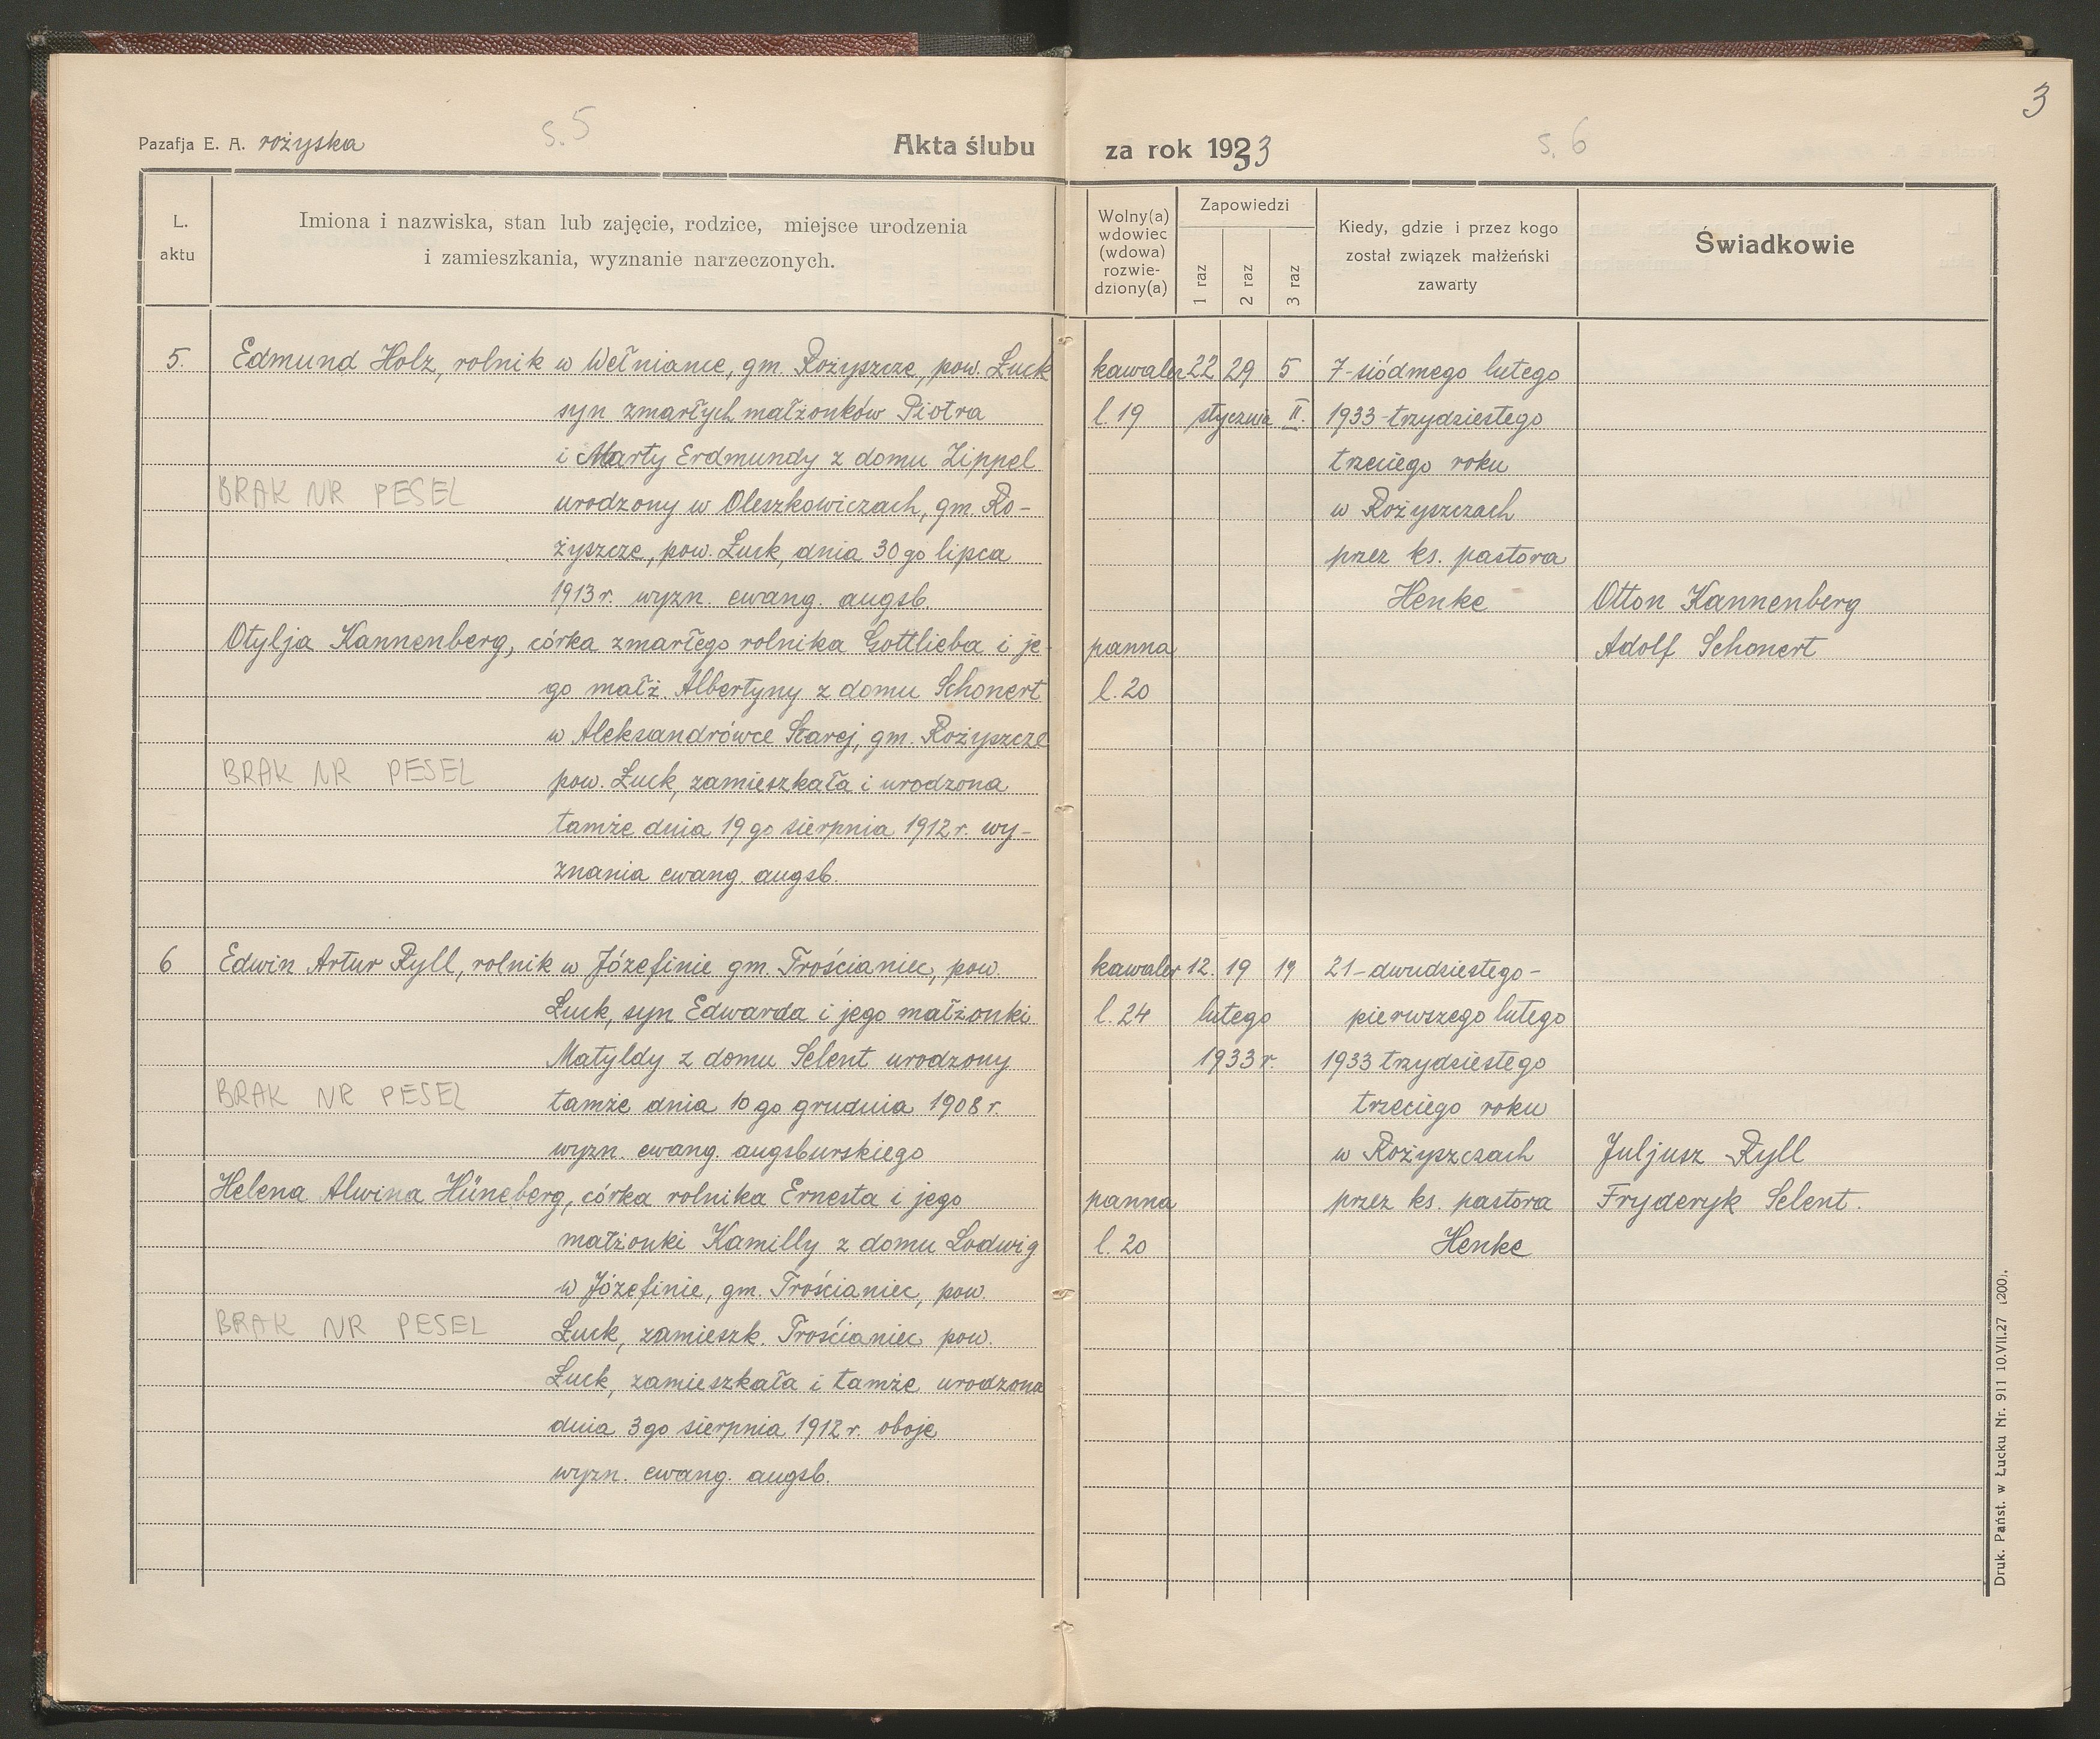 3
Pazafja E. A. rożyska
s. 5
Akta ślubu
za rok 1933
s. 6
L.
aktu
Imiona i nazwiska, stan lub zajęcie, rodzice, miejsce urodzenia
i zamieszkania, wyznanie narzeczonych.
Wolny(a)
wdowiec
(wdowa)
rozwie-
dziony(a)
Zapowiedzi
1 raz
2 raz
3 raz
Kiedy, gdzie i przez kogo
został związek małżeński
zawarty
Świadkowie
5.
Edmund Holz, rolnik w Wełniance, gm. Rożyszcze, pow. Łuck
syn zmarłych małżonków Piotra
i Marty Erdmundy z domu Zippel
BRAK NR PESEL
urodzony w Oleszkowiczach, gm. Ro-
żyszcze, pow. Łuck, dnia 30 go lipca
1913 r. wyzn. ewang. augsb.
Otylja Kannenberg, córka zmarłego rolnika Gottlieba i je-
go małż. Albertyny z domu Schonert
w Aleksandrówce Starej, gm. Rożyszcze
BRAK NR PESEL
pow. Łuck, zamieszkała i urodzona
tamże dnia 19 go sierpnia 1912 r. wy-
znania ewang. augsb.
kawaler 22 29 5
l. 19 stycznia II.
panna
l. 20
7-siódmego lutego
1933-trzydziestego
trzeciego roku
w Rożyszczach
przez ks. pastora
Henke
Otton Kannenberg
Adolf Schonert
6
Edwin Artur Ryll, rolnik w Józefinie gm. Trościaniec, pow.
Łuck, syn Edwarda i jego małżonki
Matyldy z domu Selent urodzony
BRAK NR PESEL
tamże dnia 10 go grudnia 1908 r.
wyzn. ewang. augsburskiego
Helena Alwina Hüneberg, córka rolnika Ernesta i jego
małżonki Kamilly z domu Lodwig
w Józefinie, gm. Trościaniec, pow.
BRAK NR PESEL
Łuck, zamieszk. Trościaniec pow.
Łuck, zamieszkała i tamże urodzona
dnia 3 go sierpnia 1912 r. oboje
wyzn. ewang. augsb.
kawaler 12. 19 19
l. 24 lutego
1933 r.
panna
l. 20
21-dwudziestego-
pierwszego lutego
1933 trzydziestego
trzeciego roku
w Rożyszczach
przez ks. pastora
Henke
Juljusz Ryll
Fryderyk Selent.
Druk. Państ. w Łucku Nr. 911 10.VII.27 (200).